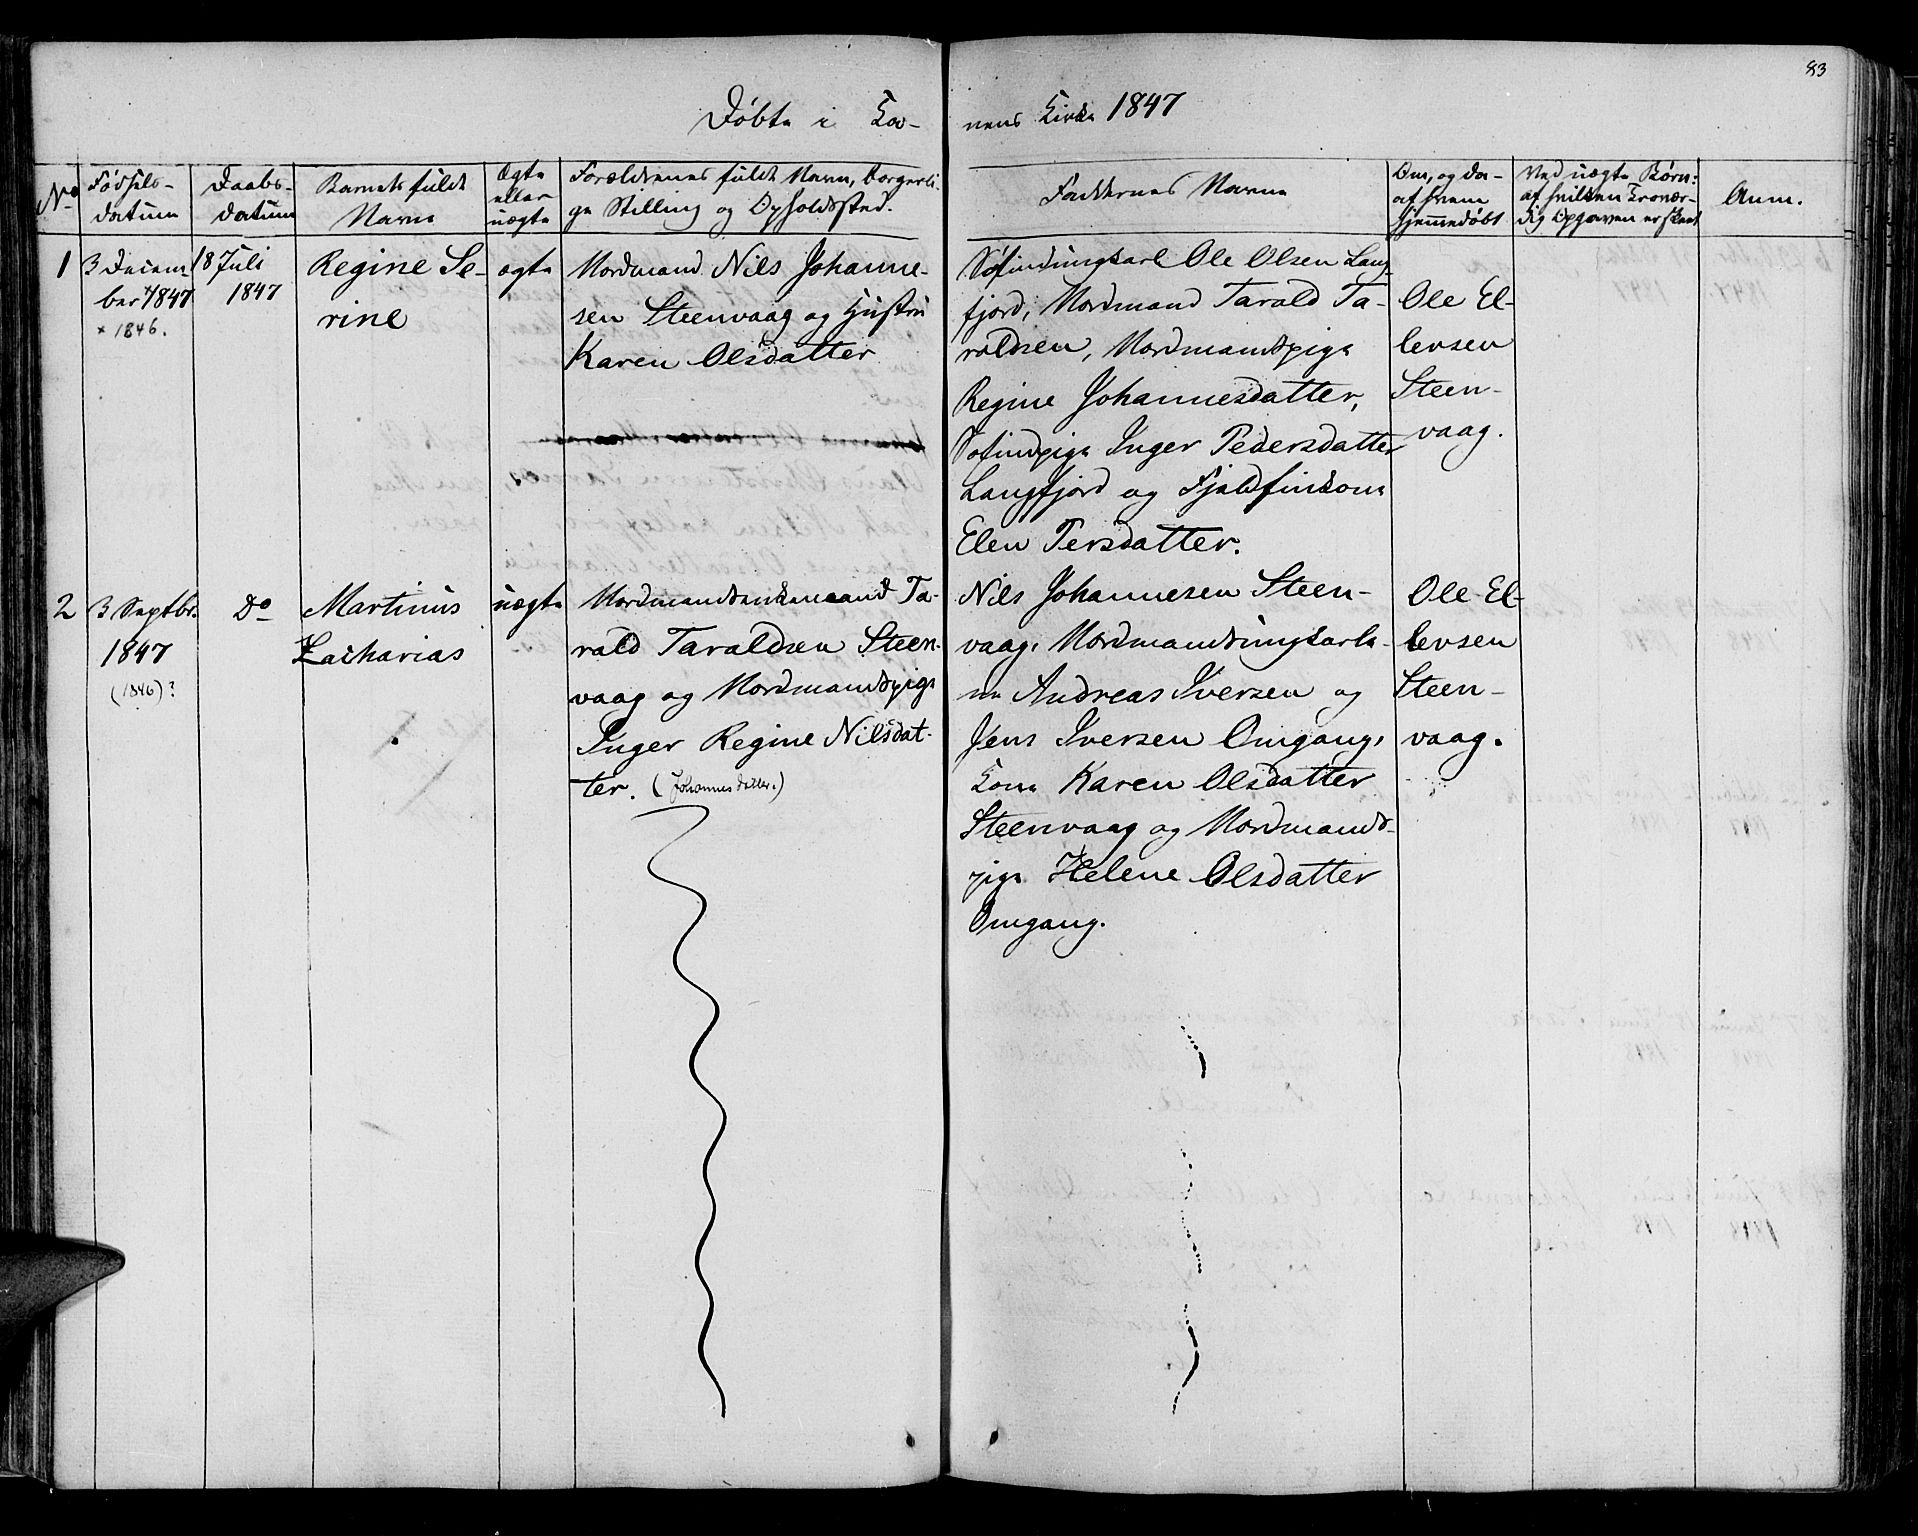 83
Døbte i Ko-
nens Kirke 1847
No
Fødsels-
datum
Daabs-
datum
Barnets fulde
Navn
Ægte
eller
uægte
Forældrenes fulde Navn, borgerli-
ge Stilling og Opholdssted.
Faddernes Navne
Om, og da
af hvem
hjemmedøbt
Ved uægte Børn:
af hvilken Trovær-
dig Opgaven er skeet
Anm.
1
3 Decem-
ber 1847
× 1846.
18 Juli
1847
Regine Se-
rine
ægte
Nordmand Nils Johanne-
sen Steenvaag og Hustru
Karen Olsdatter
Søfindungkarl Ole Olsen Lang-
fjord, Nordmand Tarald Ta-
raldsen, Nordmandspige
Regine Johannesdatter,
Søfinpige Inger Pedersdatter
Langfjord og Fjeldfinkone
Elen Persdatter.
Ole El-
levsen
Steen-
vaag.
2
3 Septbr.
1847
(1846)?
Do
Martinus
Zacharias
uægte
Nordmandsenkemand Ta-
rald Taraldsen Steen-
vaag og Nordmandspige
Inger Regine Nilsdat-
ter. (Johannesdatter.)
Nils Johannesen Steen-
vaag, Nordmandsungkarle-
ne Andreas Iversen og
Jens Iversen Omgang,
Kone Karen Olsdatter
Steenvaag og Nordmands-
pige Helene Olsdatter
Omgang.
Ole El-
levsen
Steen-
vaag.